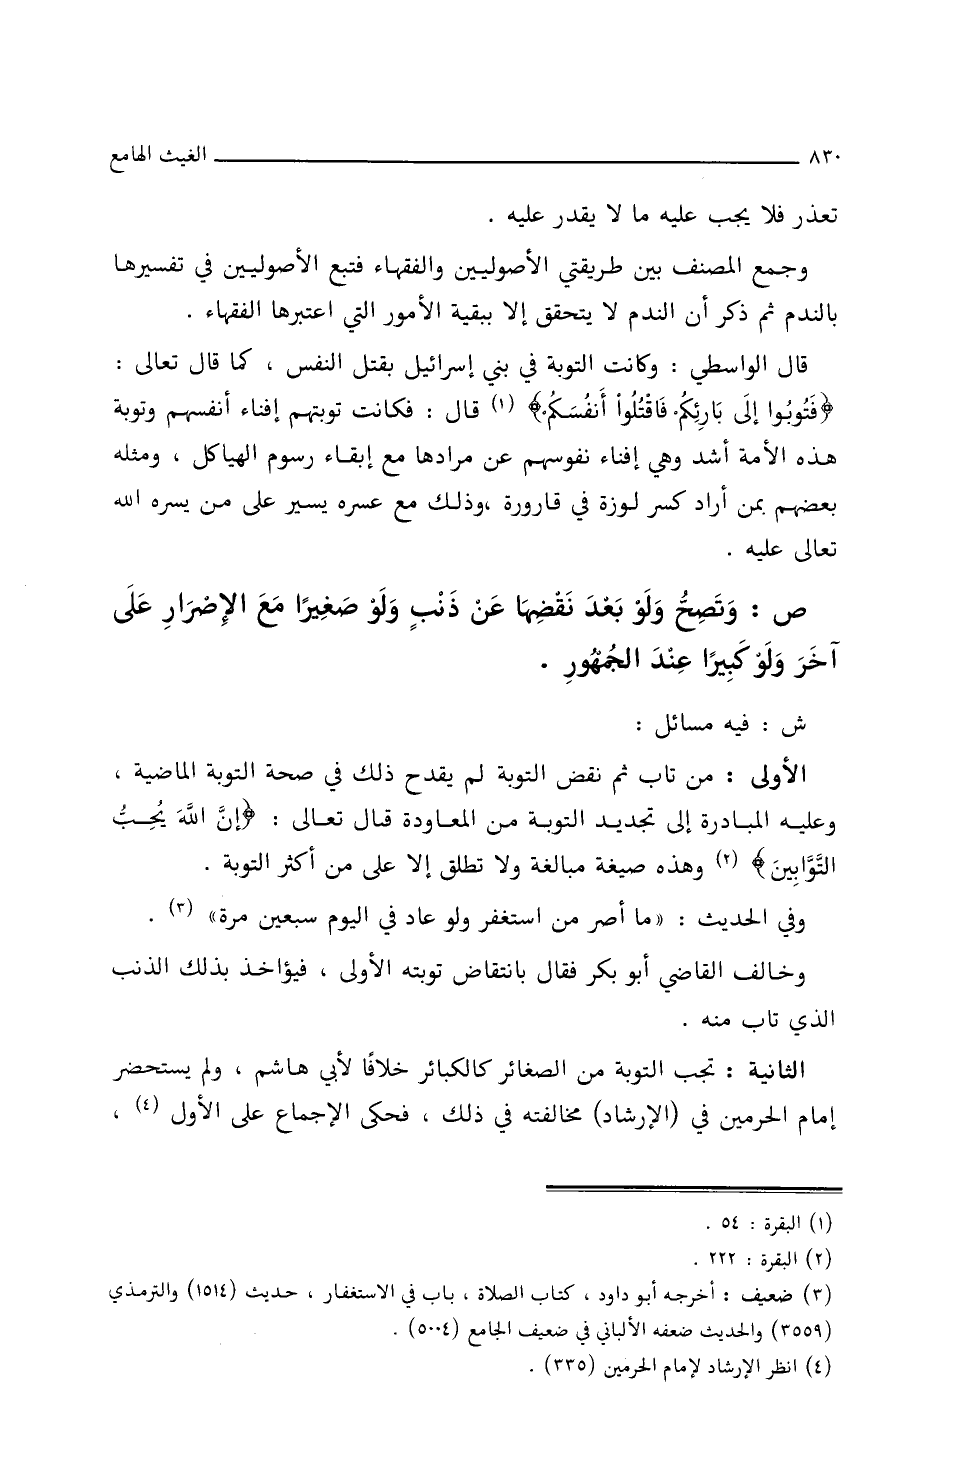 ٨٣٠ الغيث الهامع
تعذر فلا يجب عليه ما لا يقدر عليه .
وجمع المصنف بين طريقتي الأصوليين والفقهاء فتبع الأصوليين في تفسيرها
بالندم ثم ذكر أن الندم لا يتحقق إلا ببقية الأمور التي اعتبرها الفقهاء .
قال الواسطي : وكانت التوبة في بني إسرائيل بقتل النفس ، كما قال تعالى :
﴿فَتُوبُوا إِلَى بَارِئِكُمْ فَاقْتُلُواْ أَنفُسَكُمْ﴾ (١) قال : فكانت توبتهم إفناء أنفسهم وتوبة
هذه الأمة أشد وهي إفناء نفوسهم عن مرادها مع إبقاء رسوم الهياكل ، ومثله
بعضهم بمن أراد كسر لوزة في قارورة ،وذلك مع عسره يسير على من يسره الله
تعالى عليه .
ص : وَتَصِحُّ وَلَوْ بَعْدَ نَقْضِهَا عَنْ ذَنْبٍ وَلَوْ صَغِيرًا مَعَ الإِصْرَارِ عَلَى
آخَرَ وَلَوْ كَبِيرًا عِنْدَ الجُمْهُورِ .
ش : فيه مسائل :
الأولى : من تاب ثم نقض التوبة لم يقدح ذلك في صحة التوبة الماضية ،
وعليه المبادرة إلى تجديد التوبة من المعاودة قال تعالى : ﴿إِنَّ اللَّهَ يُحِبُّ
التَّوَّابِينَ﴾ (٢) وهذه صيغة مبالغة ولا تطلق إلا على من أكثر التوبة .
وفي الحديث : «ما أصر من استغفر ولو عاد في اليوم سبعين مرة» (٣) .
وخالف القاضي أبو بكر فقال بانتقاض توبته الأولى ، فيؤاخذ بذلك الذنب
الذي تاب منه .
الثانية : تجب التوبة من الصغائر كالكبائر خلافًا لأبي هاشم ، ولم يستحضر
إمام الحرمين في (الإرشاد) مخالفته في ذلك ، فحكى الإجماع على الأول (٤) ،
(١) البقرة : ٥٤ .
(٢) البقرة : ٢٢٢ .
(٣) ضعيف : أخرجه أبو داود ، كتاب الصلاة ، باب في الاستغفار ، حديث (١٥١٤) والترمذي
(٣٥٥٩) والحديث ضعفه الألباني في ضعيف الجامع (٥٠٠٤) .
(٤) انظر الإرشاد لإمام الحرمين (٣٣٥) .